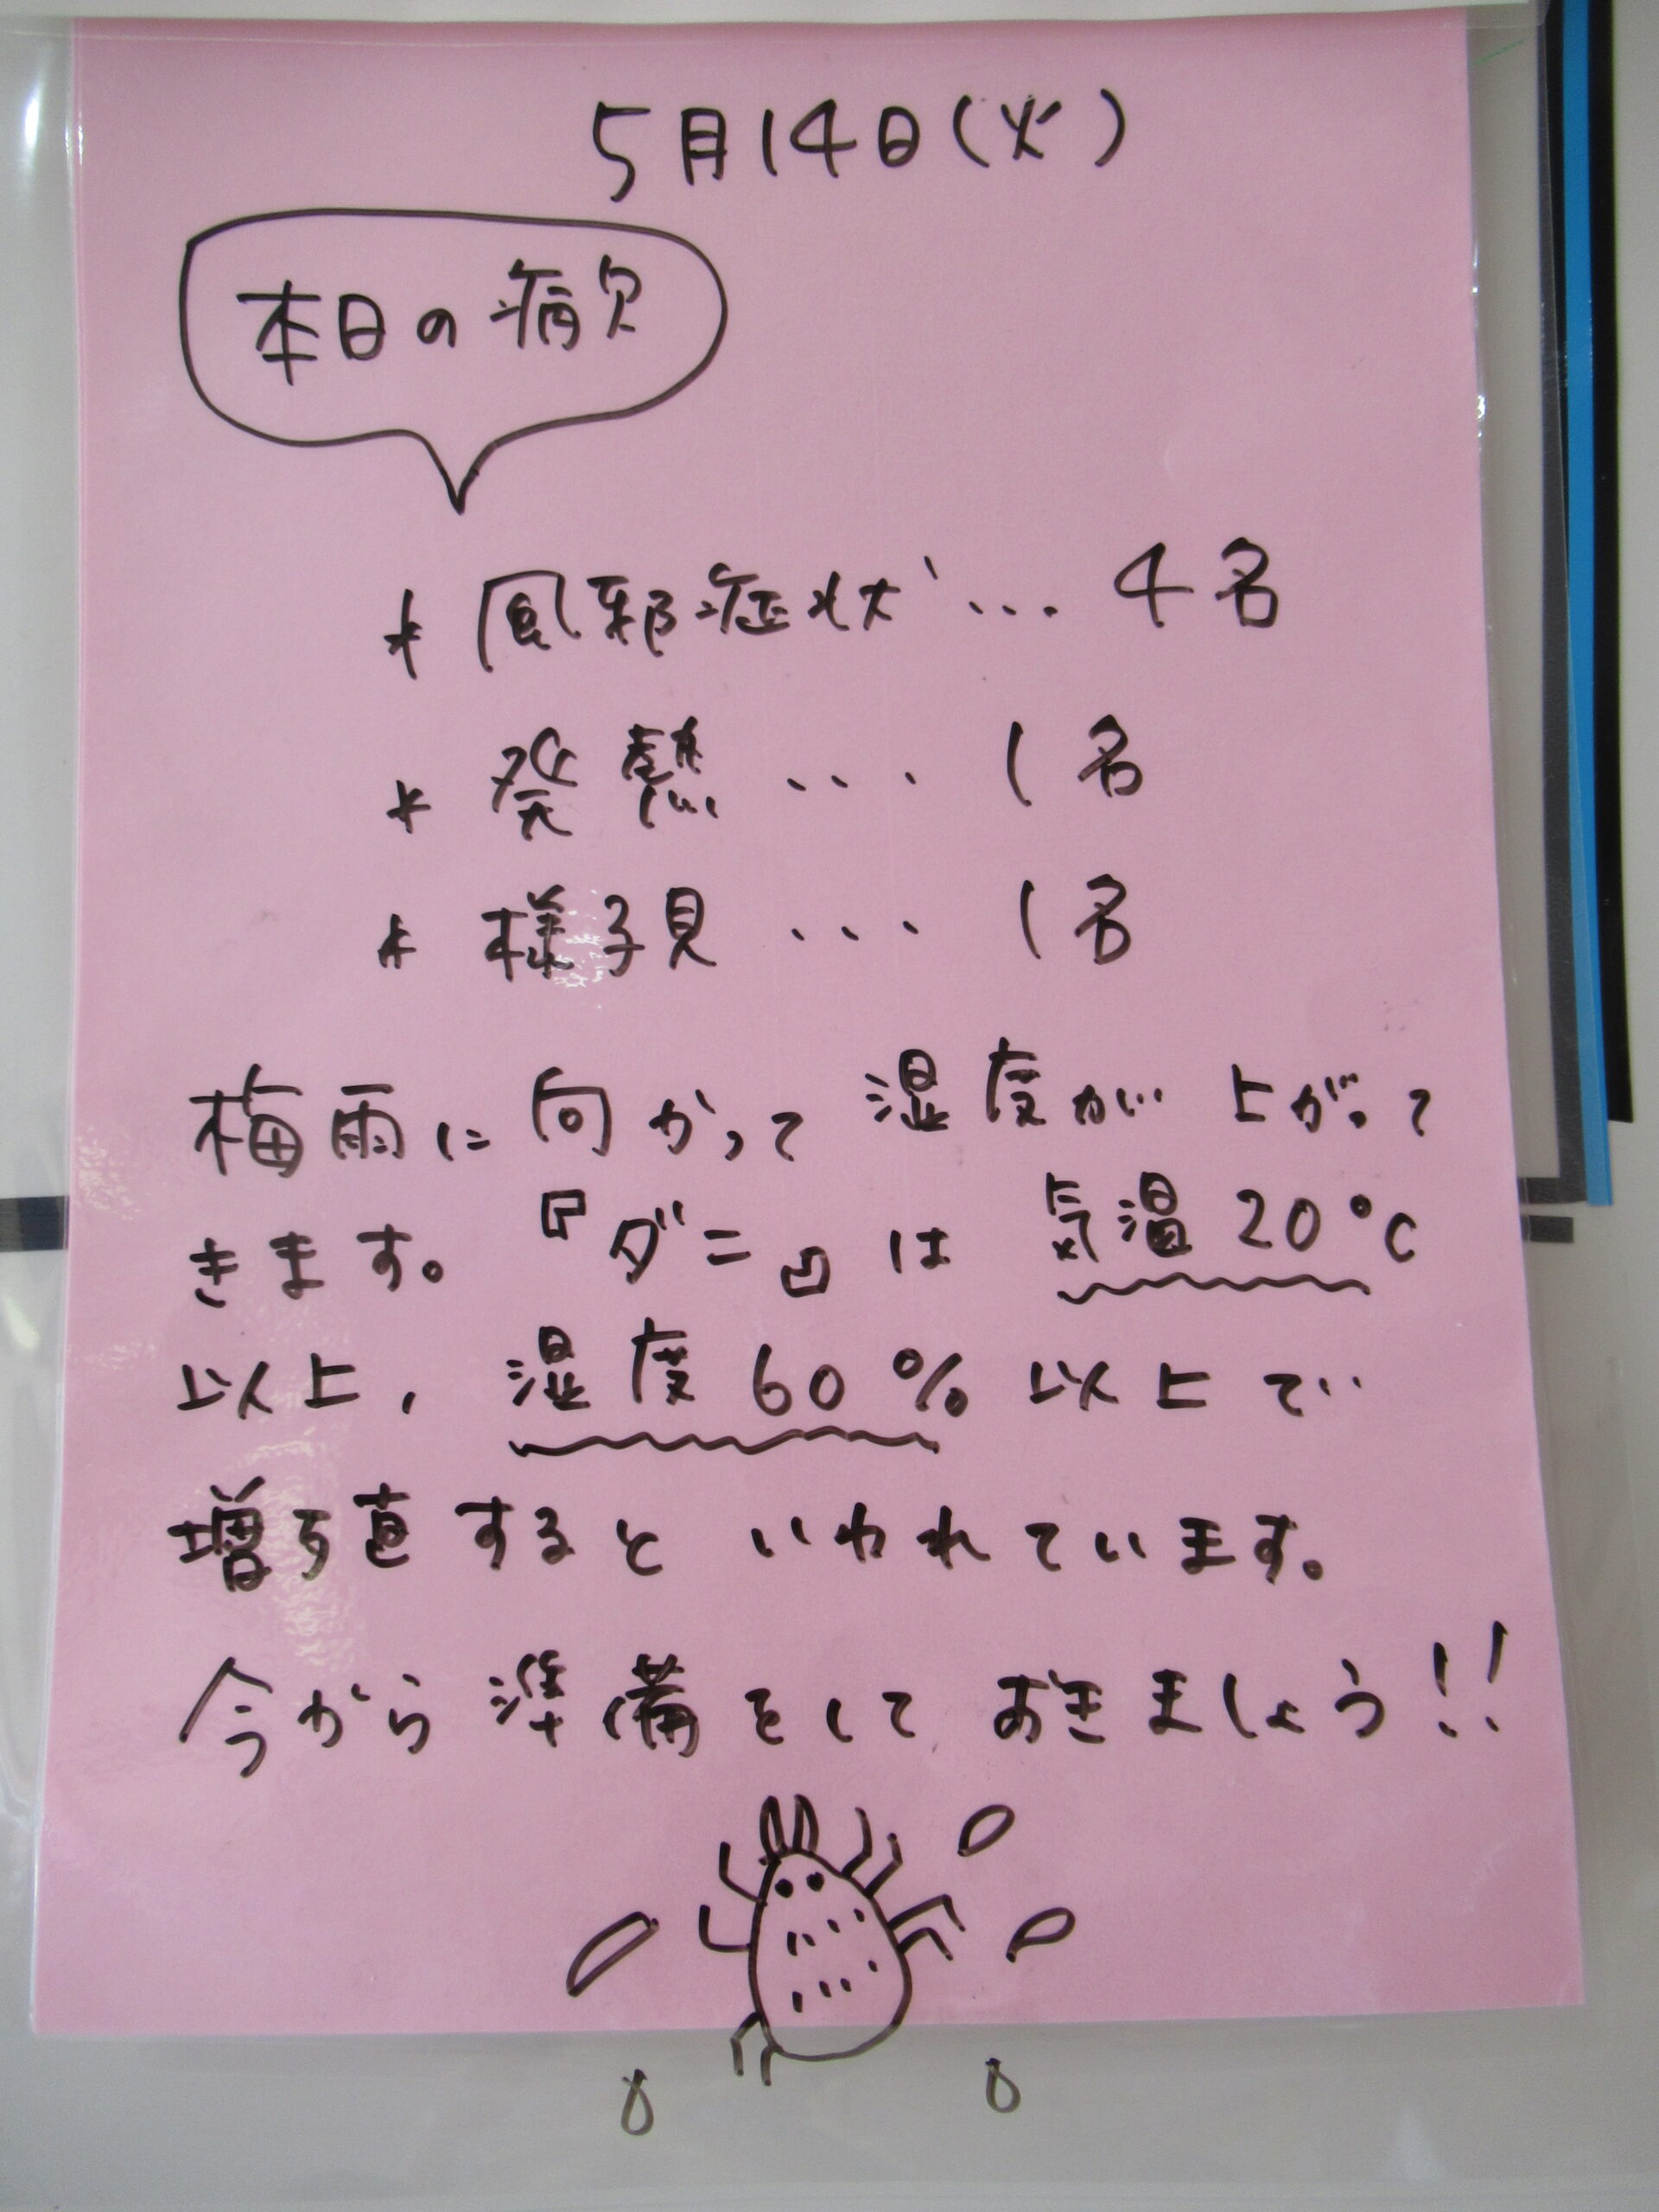 5月14日(火)
本日の病欠
* 風邪症状 ... 4名
* 発熱 ... 1名
* 様子見 ... 1名
梅雨に向かって湿度が上がって
きます。『ダニ』は気温20℃
以上，湿度60%以上で
増殖するといわれています。
今から準備をしておきましょう!!